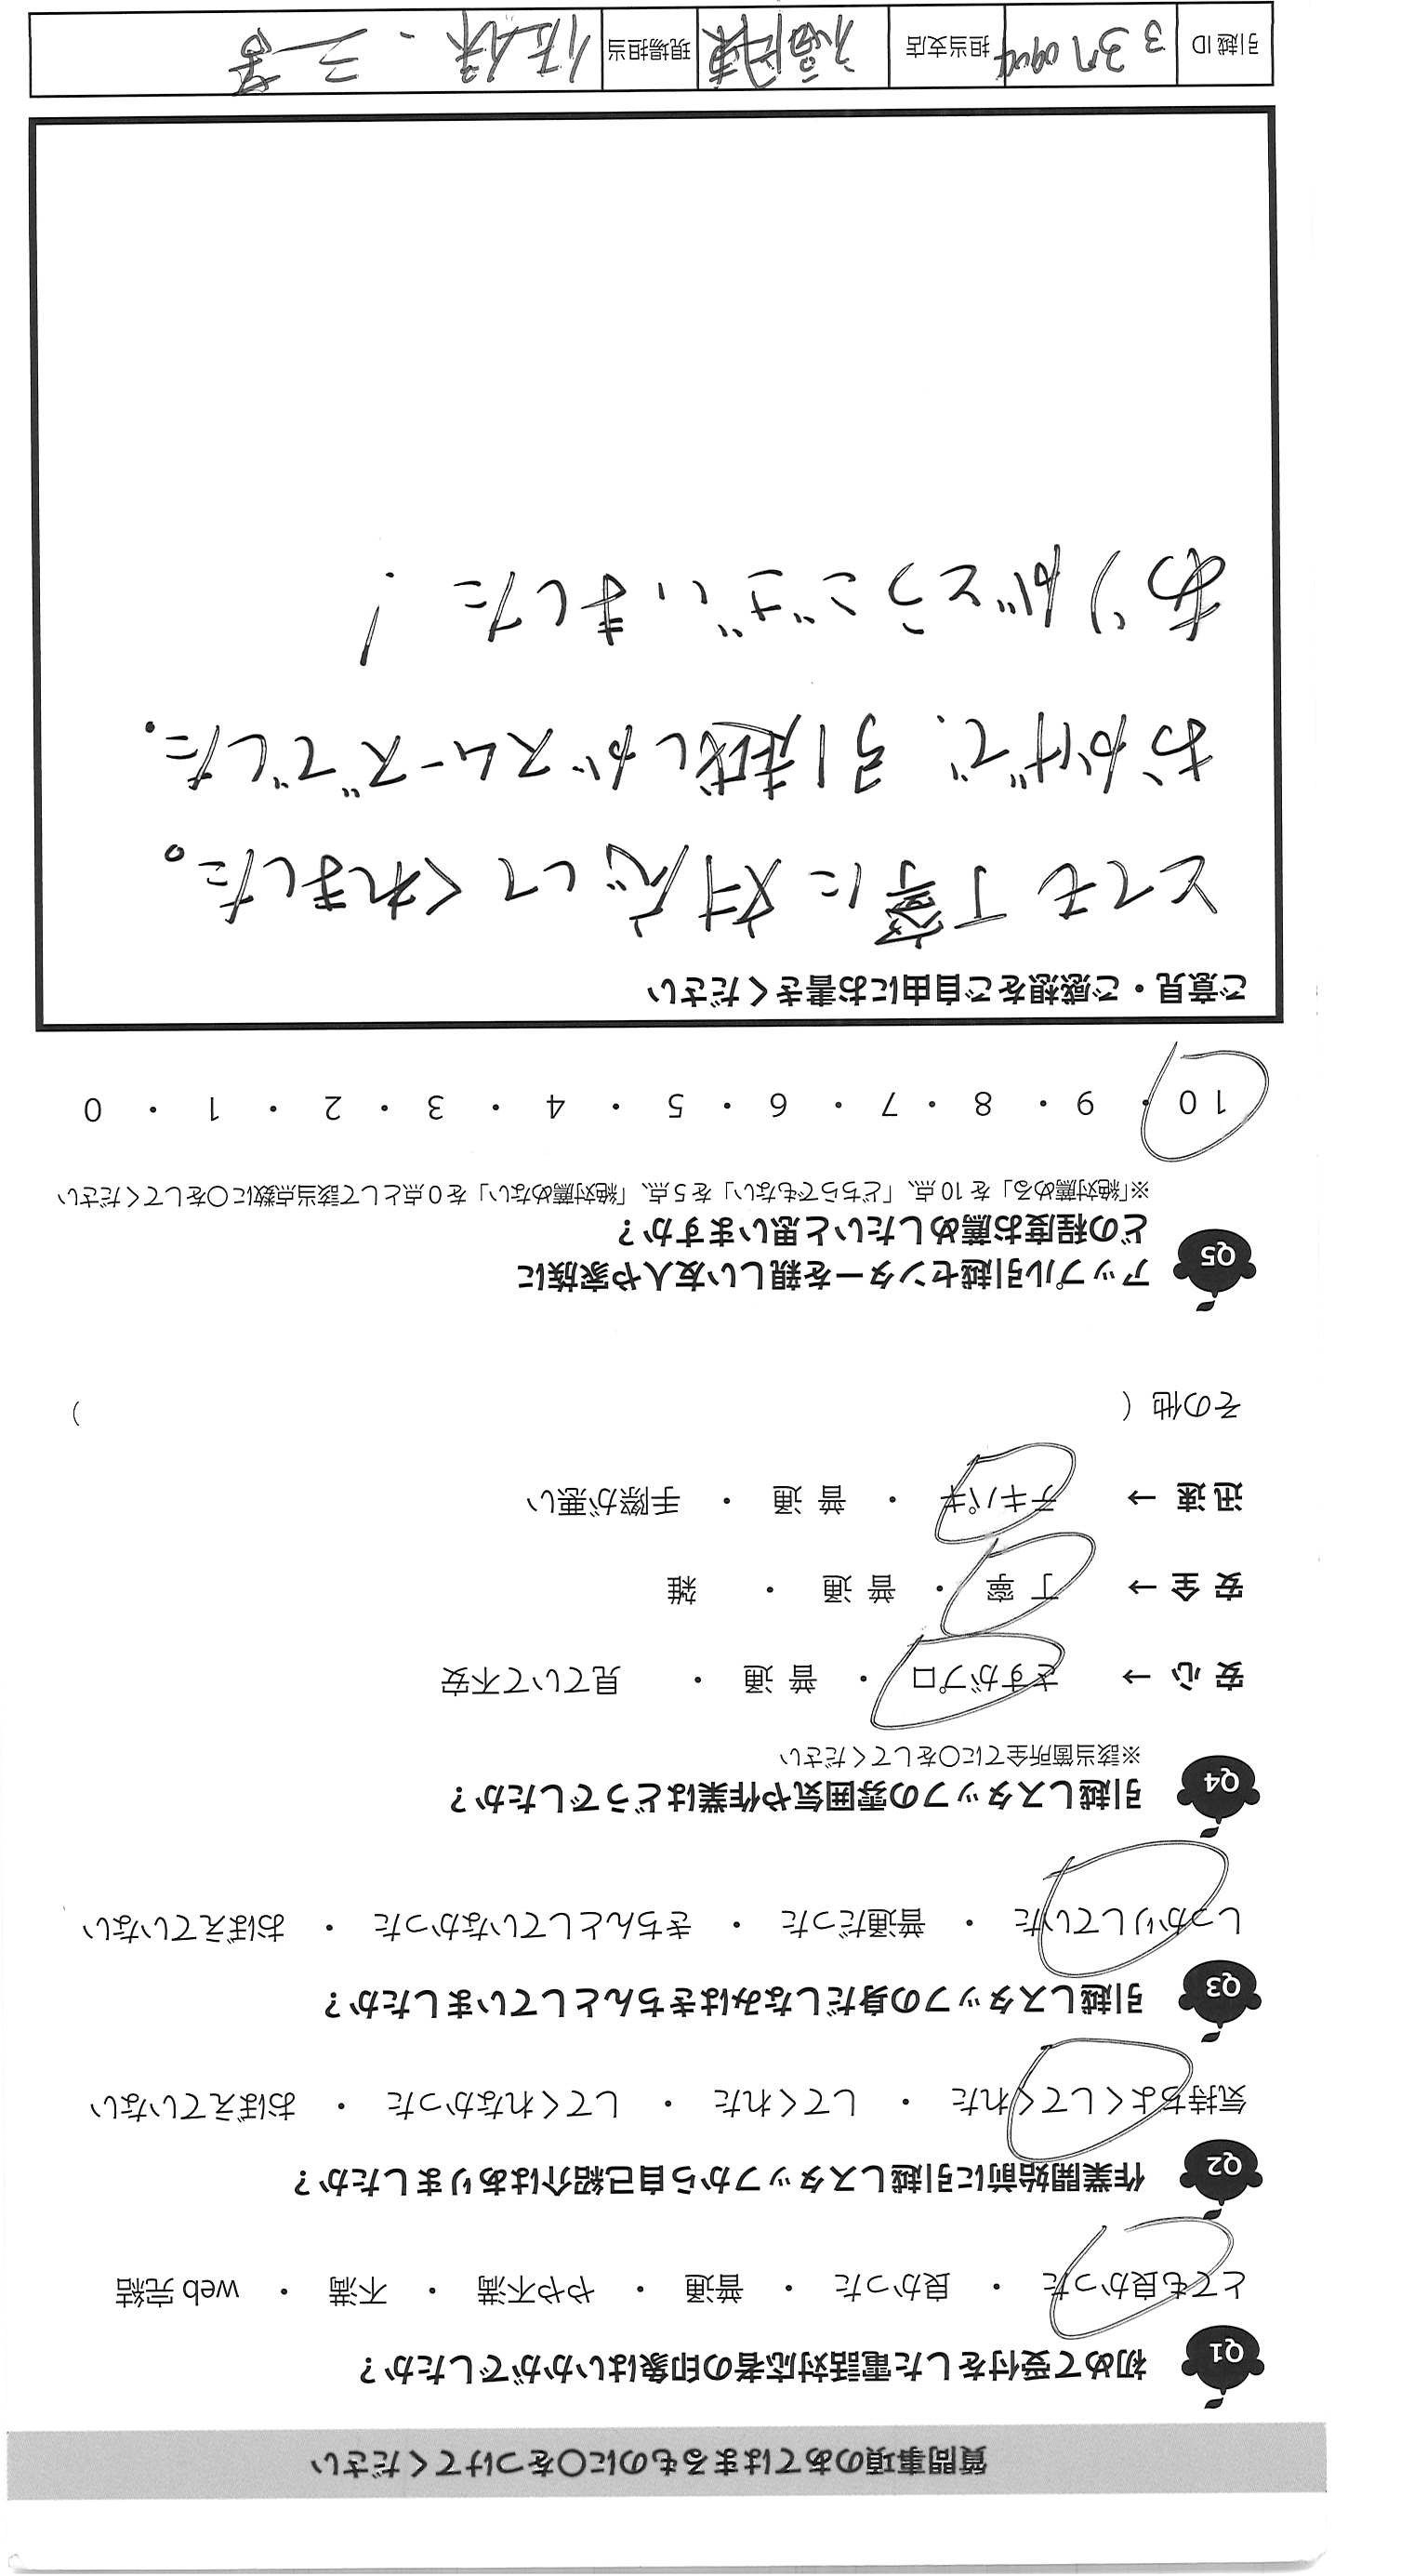 質問事項のあてはまるものに○をつけてください
Q1 初めて受付をした電話対応者の印象はいかがでしたか？
とても良かった ・ 良かった ・ 普通 ・ やや不満 ・ 不満 ・ web 完結
Q2 作業開始前に引越しスタッフから自己紹介はありましたか？
気持ちよくしてくれた ・ してくれた ・ してくれなかった ・ おぼえていない
Q3 引越しスタッフの身だしなみはきちんとしていましたか？
しっかりしていた ・ 普通だった ・ きちんとしていなかった ・ おぼえていない
Q4 引越しスタッフの雰囲気や作業はどうでしたか？
※該当箇所全てに○をしてください
安 心 → さすがプロ ・ 普 通 ・ 見ていて不安
安 全 → 丁 寧 ・ 普 通 ・ 雑
迅 速 → テキパキ ・ 普 通 ・ 手際が悪い
その他（ ）
Q5 アップル引越センターを親しい友人や家族に
どの程度お薦めしたいと思いますか？
※「絶対薦める」を 10 点、「どちらでもない」を 5 点、「絶対薦めない」を 0 点として該当点数に○をしてください
10 ・ 9 ・ 8 ・ 7 ・ 6 ・ 5 ・ 4 ・ 3 ・ 2 ・ 1 ・ 0
ご意見・ご感想をご自由にお書きください
とても丁寧に対応してくれました。
おかげで、引越しがスムーズでした.
ありがとうございました！
引越 ID 担当支店 福岡東 現場担当